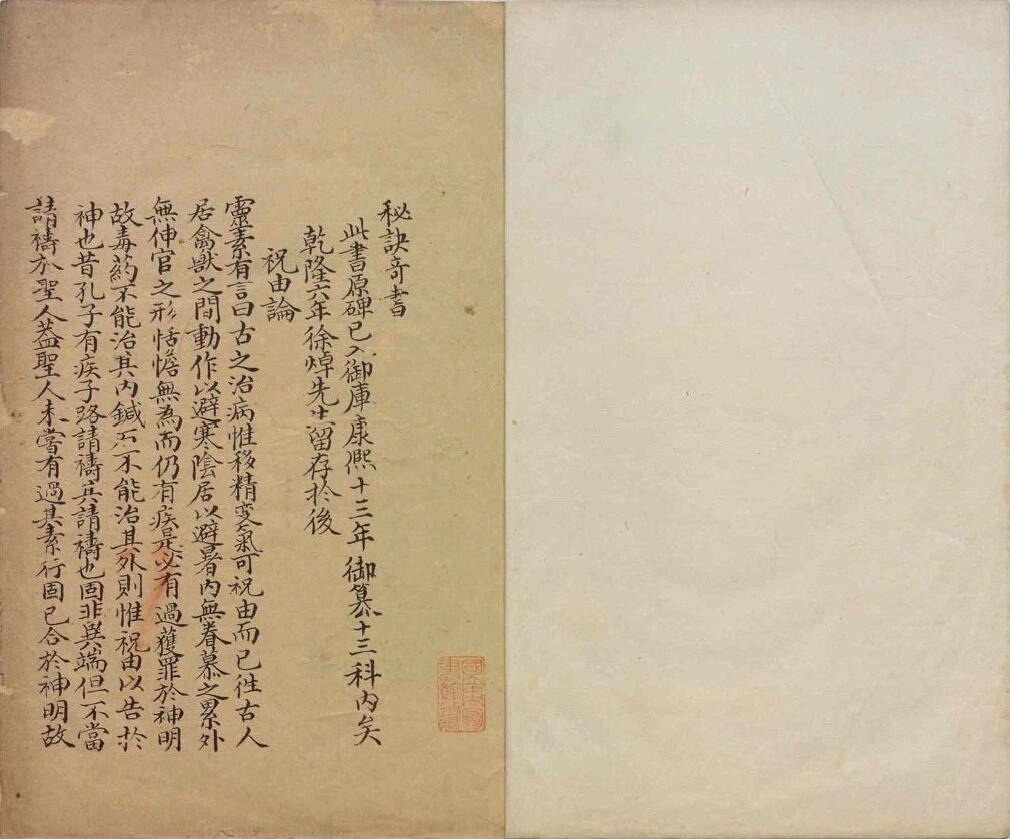 秘訣奇書
此書原碑已入御庫康熙十三年御纂十三科内矣
乾隆六年徐焯先生留存於後
祝由論
靈素有言曰古之治病惟移精变氣可祝由而已徃古人
居禽獸之間動作以避寒陰居以避暑内無眷慕之累外
無伸官之形恬憺無為而仍有疾是必有過獲罪於神明
故毒葯不能治其内鍼石不能治其外則惟祝由以告於
神也昔孔子有疾子路請禱其請禱也固非異端但不當
請禱於聖人葢聖人未嘗有過其素行固已合於神明故